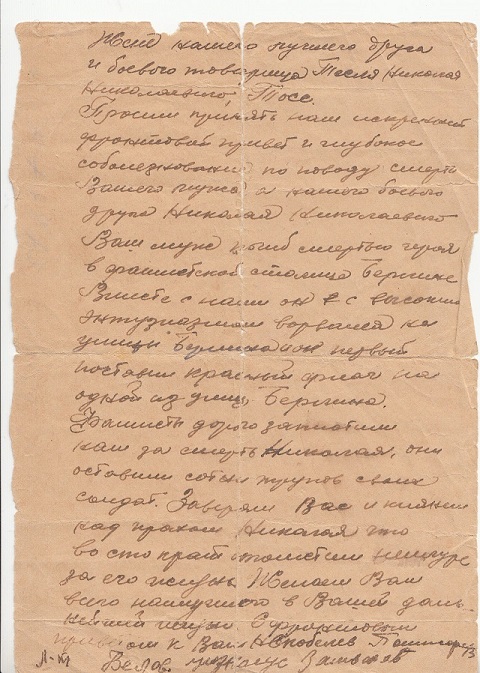 Жене нашего лучшего друга
и боевого товарища Тесля Николая
Николаевича, Тосе.
Просим принять наш искренний
фронтовой привет и глубокое
соболезнование по поводу смерти
Вашего мужа и нашего боевого
друга Николая Николаевича
Ваш муж погиб смертью героя
в фашистской столице Берлине
Вместе с нами он с высоким
энтузиазмом ворвался на
улицы Берлина и он первый
поставил красный флаг на
одной из улиц Берлина.
Фашисты дорого заплатили
нам за смерть Николая, они
оставили сотни трупов своих
солдат. Заверяем Вас и
над прахом Николая что
во сто крат отомстим немчуре
за его жизнь Желаем Вам
всего наилучшего в Вашей даль-
нейшей жизни С фронтовым
приветом к Вам Скобелев
Л-нт Белов.